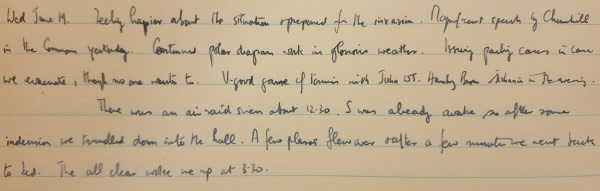 Wed June 19. Feeling happier about the situation & prepared for the invasion. Magnificent speech by Churchill
in the Commons yesterday. Continued polar diagram work in glorious weather. Issuing packing cases in case
we evacuate, though no one wants to. V-good game of tennis with John W. in evening.
There was an air raid siren about 12.30. I was already awake so after some
indecision we trundled down into the hall. A few planes flew over & after a few minutes we went back
to bed. The all clear woke me up at 3:30.